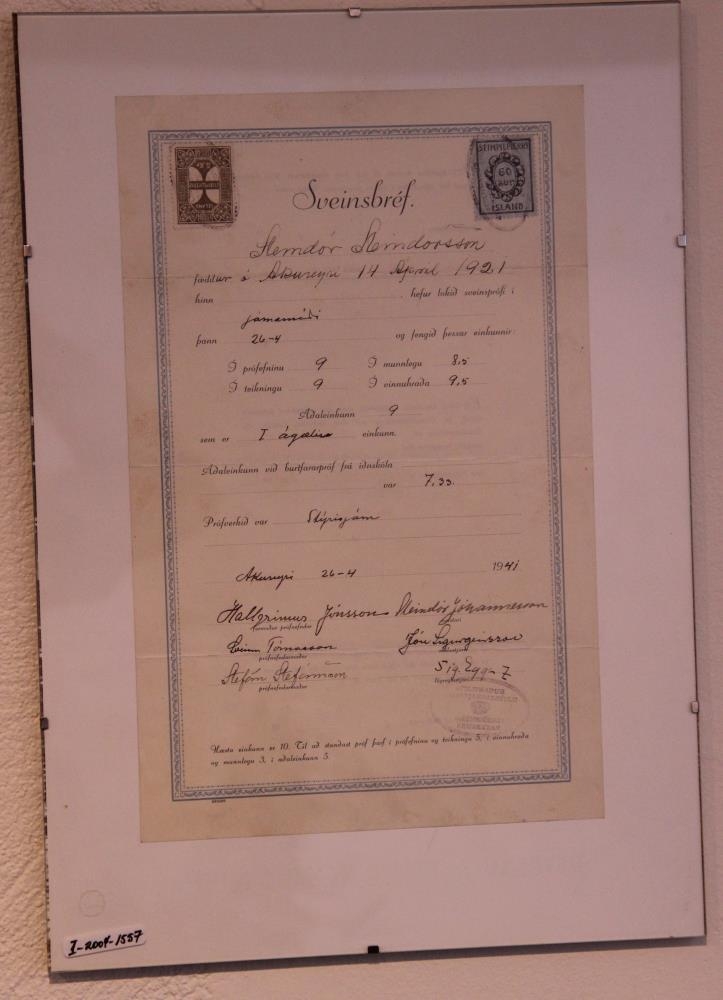 STIMPILMERKI
60
AUR
ÍSLAND
Sveinsbréf.
Steindór Steindórsson
fæddur á Akureyri 14 Apríl 1921
hinn hefur lokið sveinsprófi í
járnsmíði
þann 26-4 og fengið þessar einkunnir:
Í prófsefninu 9 Í munnlegu 8,5
Í teikningu 9 Í vinnuhraða 9,5
Aðaleinkunn 9
sem er I ágætis einkunn.
Aðaleinkunn við burtfararpróf frá iðnskóla
var 7,33.
Prófverkið var Stýrisjárn
Akureyri 26-4 1941
Hallgrímur Jónsson Steindór Jóhannesson
formaður prófnefndar
Tómasson Jón Sigurgeirsson
prófnefndarmaður
Stefán Stefánsson Sig. Eggerz
prófnefndarmaður
Hæsta einkunn er 10. Til að standast próf þarf í prófsefninu og teikningu 5, í vinnuhraða
og munnlegu 3, í aðaleinkunn 5.
I-2004-1557